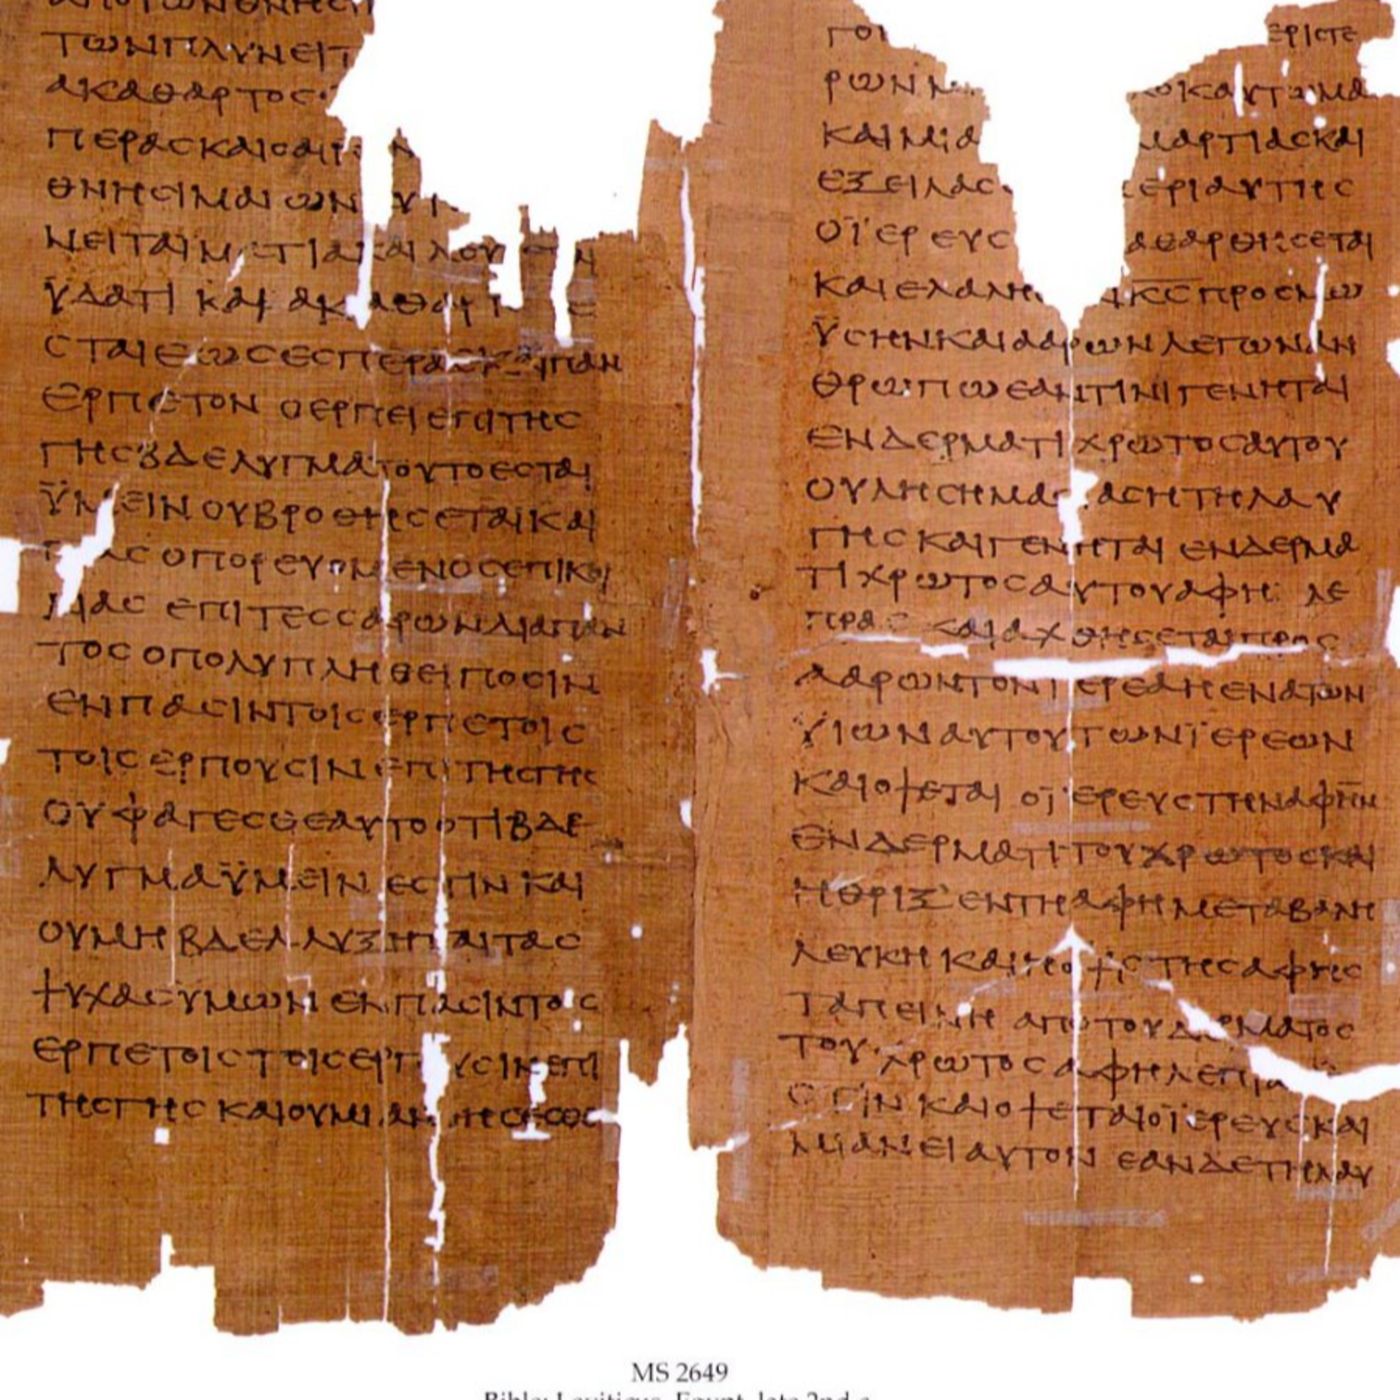 ΤΩΝΠΛΥΝΕΙΤ
ΑΚΑΘΑΡΤΟΣ
ΠΕΡΑΣΚΑΙΟΑΙΡ Ν
ΘΝΗΣΙΜΑΙΩΝ
ΝΕΙΤΑΙΜ ΤΙΑΚΑΙΛΟΥ
ΫΔΑΤΙ ΚΑΙ ΑΚΑΘΑΡΤ Ε
ΣΤΑΙΕΩΣΕΣΠΕΡΑΣΚΑΙΠΑΝ
ΕΡΠΕΤΟΝ ΟΕΡΠΕΙΕΠΙΤΗΣ
ΓΗΣΒΔΕΛΥΓΜΑΤΟΥΤΟΕΣΤΑΙ
ΫΜΕΙΝΟΥΒΡΩΘΗΣΕΤΑΙΚΑΙ
ΑΣ ΟΠΟΡΕΥΟΜΕΝΟΣΕΠΙΚΟΙ
ΛΙΑΣ ΕΠΙΤΕΣΣΑΡΩΝΔΙΑΠΑΝ
ΤΟΣΟΠΟΛΥΠΛΗΘΕΙΠΟΣΙΝ
ΕΝΠΑΣΙΝΤΟΙΣΕΡΠΕΤΟΙΣ
ΤΟΙΣΕΡΠΟΥΣΙΝΕΠΙΤΗΣΓΗΣ
ΟΥΦΑΓΕΣΘΕΑΥΤΟΟΤΙΒΔΕ
ΛΥΓΜΑΫΜΕΙΝ ΕΣΤΙΝΚΑΙ
ΟΥΜΗΒΔΕΛΛΥΞΗΤΑΙΤΑΣ
ΨΥΧΑΣΥΜΩΝΕΝΠΑΣΙΝΤΟΙΣ
ΕΡΠΕΤΟΙΣΤΟΙΣΕΡΠ ΥΣΙΝΕΠΙ
ΤΗΣΓΗΣΚΑΙΟΥΜΙΑΝ ΗΣΕΣΘΕ
ΓΟΙ ΕΡΙΣΤΕ
ΡΩΝΜ ΟΚΑΥΤΩΜΑ
ΚΑΙΜΙΑ ΜΑΡΤΙΑΣΚΑΙ
ΕΞΕΙΛΑΣ ΠΕΡΙΑΥΤΗΣ
ΟΪΕΡΕΥΣ ΑΘΑΡΘΗΣΕΤΑΙ
ΚΑΙΕΛΑΛΗΣ Κ̅Σ̅ΠΡΟΣΜΩ
ΫΣΗΝΚΑΙΑΑΡΩΝΛΕΓΩΝΑΝ
ΘΡΩΠΩΕΑΝΤΙΝΙΓΕΝΗΤΑΙ
ΕΝΔΕΡΜΑΤΙΧΡΩΤΟΣΑΥΤΟΥ
ΟΥΛΗΣΗΜΑΣ ΑΣΗΤΗΛΑΥ
ΓΗΣΚΑΙΓΕΝΗΤΑΙ ΕΝΔΕΡΜΑ
ΤΙΧΡΩΤΟΣΑΥΤΟΥΑΦΗ ΛΕ
ΠΡΑΣ ΚΑΙΑΧΘΗΣΕΤΑΙΠΡΟΣ
ΑΑΡΩΝΤΟΝΪΕΡΕΑΗΕΝΑΤΩΝ
ΫΙΩΝΑΥΤΟΥΤΩΝΪΕΡΕΩΝ
ΚΑΙΟΨΕΤΑΙ ΟΪΕΡΕΥΣΤΗΝΑΦΗΝ
ΕΝΔΕΡΜΑΤΙΤΟΥΧΡΩΤΟΣΚΑΙ
ΗΘΡΙΞ ΕΝΤΗΑΦΗΜΕΤΑΒΑΛΗ
ΛΕΥΚΗΚΑΙΗΟΨΙΣΤΗΣΑΦΗΣ
ΤΑΠΕΙΝΗ ΑΠΟΤΟΥΔΕΡΜΑΤΟΣ
ΤΟΥΧΡΩΤΟΣΑΦΗΛΕΠΡΑ
ΣΤΙΝΚΑΙΟΨΕΤΑΙΟΪΕΡΕΥΣΚΑΙ
ΜΙΑΝΕΙΑΥΤΟΝ ΕΑΝΔΕΤΗΛΑΥ
MS 2649
Bible: Leviticus. Egypt, late 2nd c.